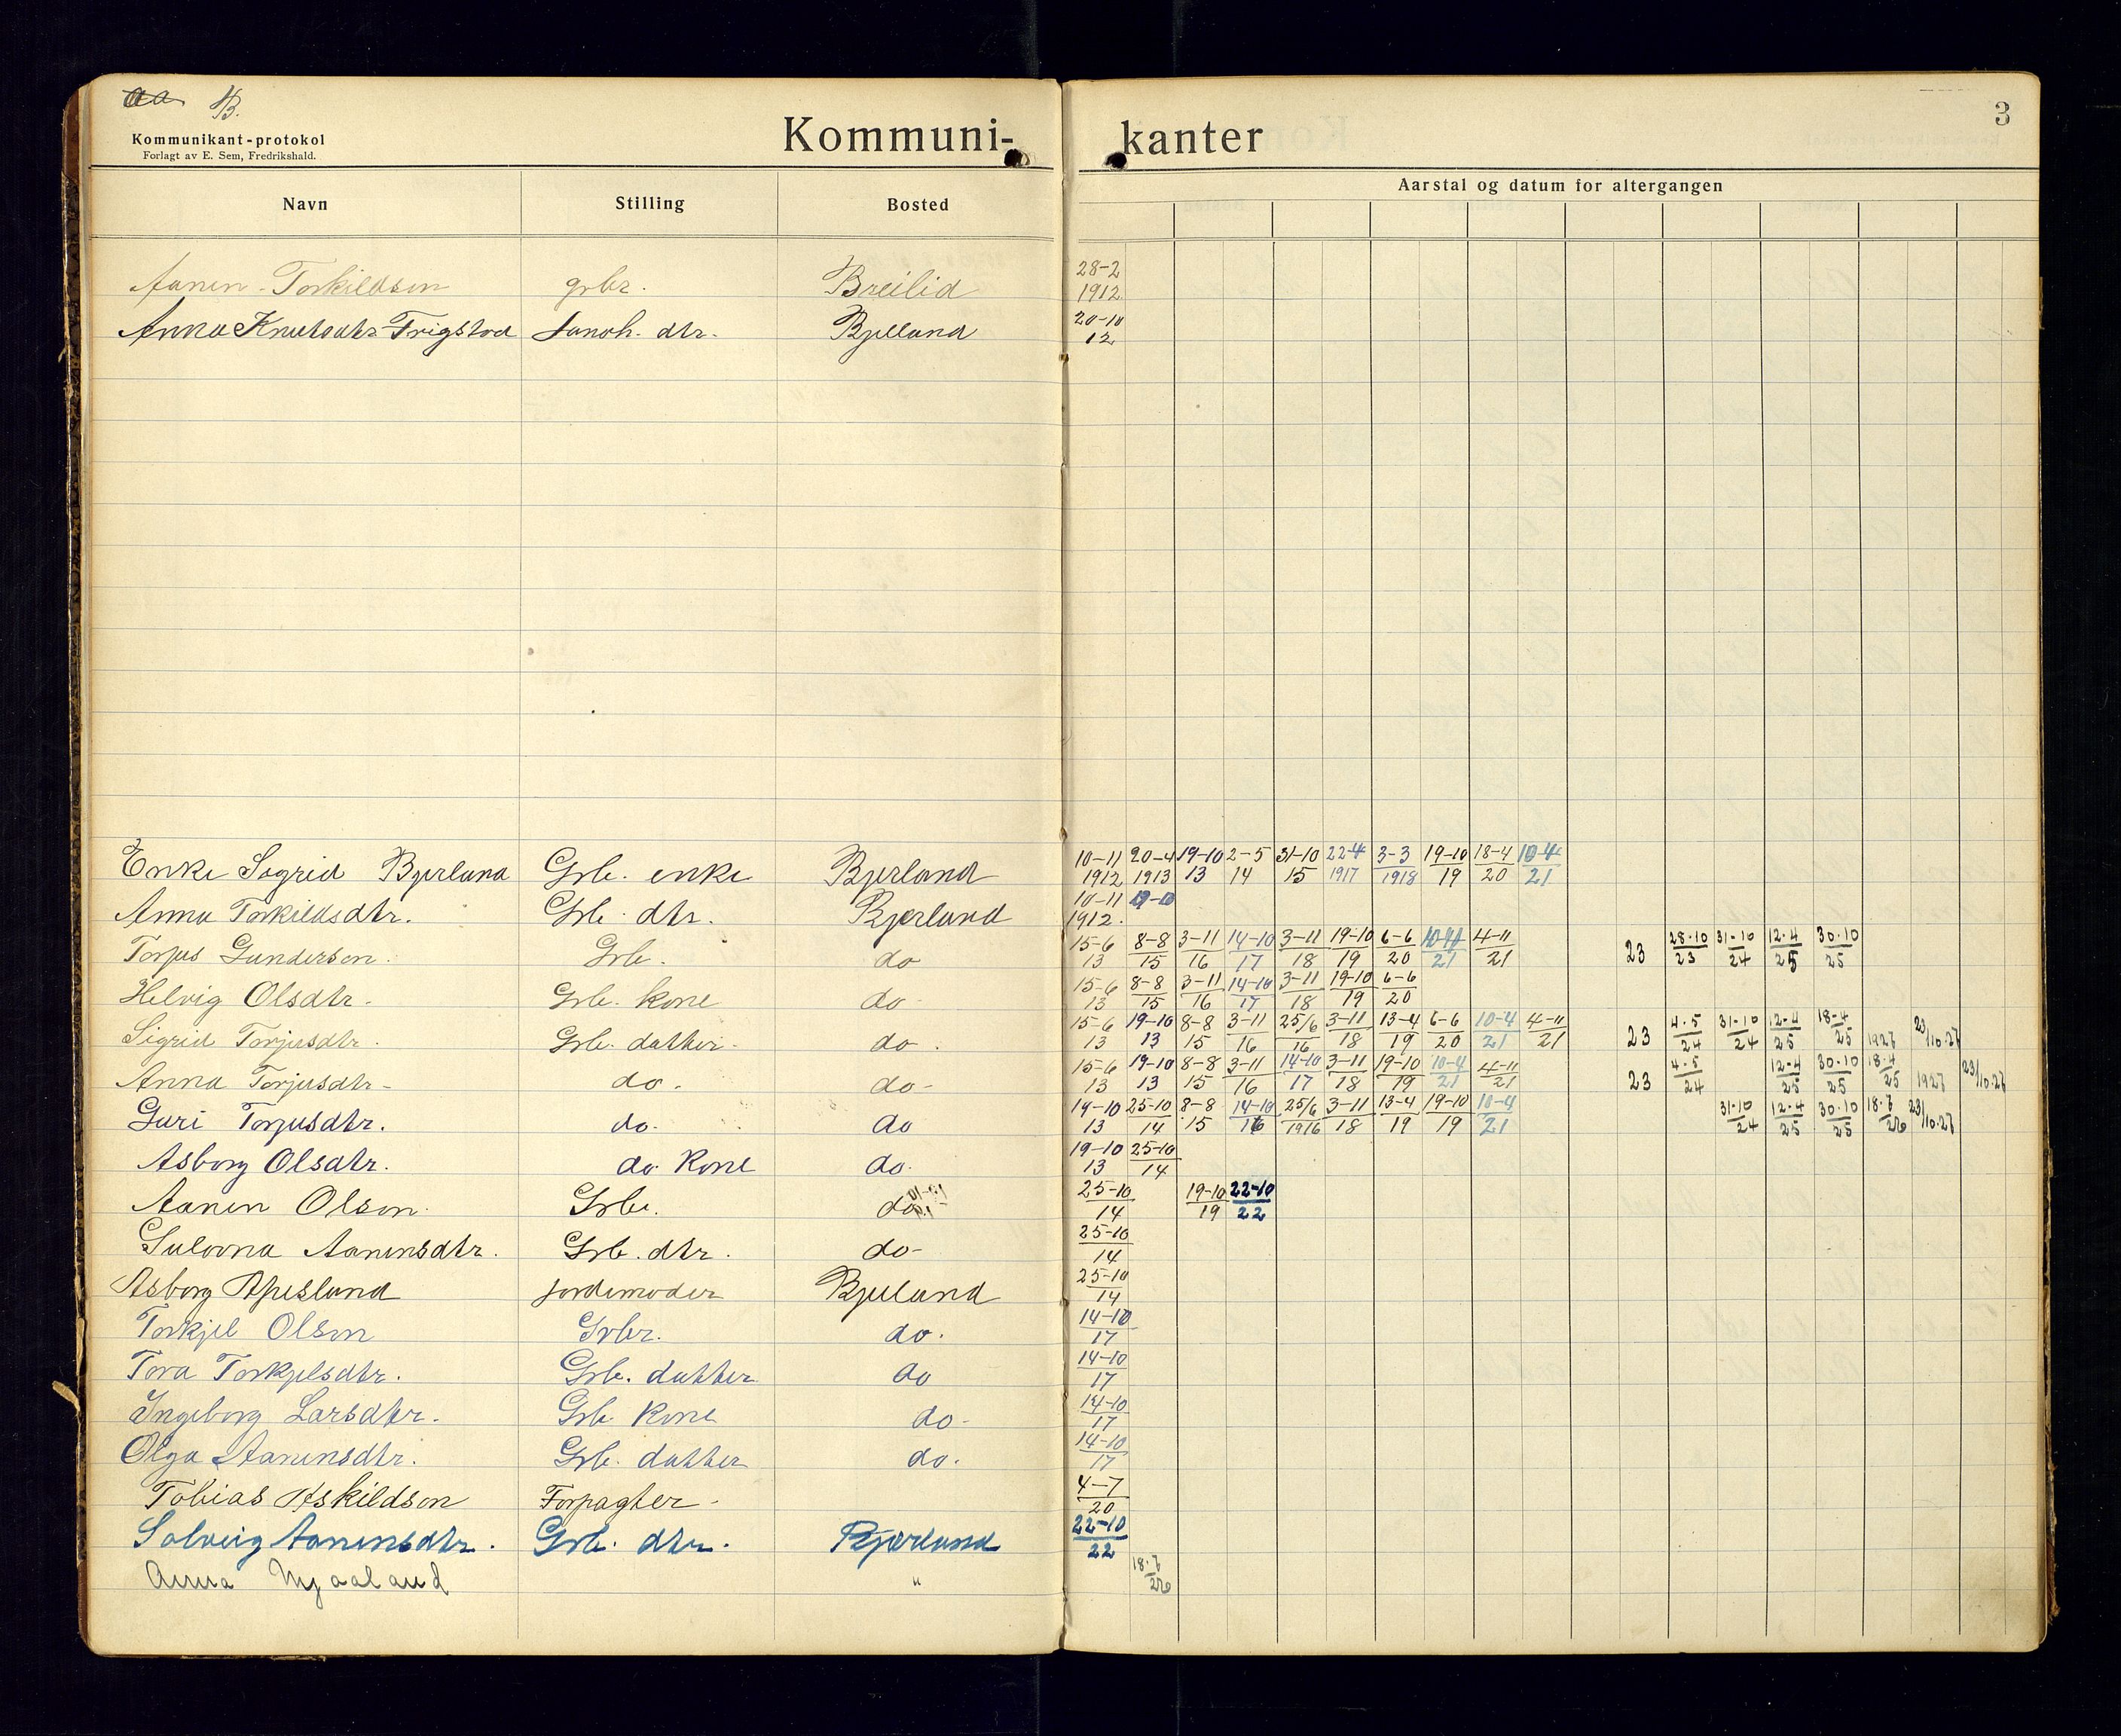 aa B.
3
Kommunikant-protokol
Forlagt av E. Sem, Fredrikshald.
Kommuni- kanter
Aarstal og datum for altergangen
Navn Stilling Bosted
Aanen Torkildsen grbr. Breilid 28-2 1912.
Anna Knutsdtr Trigstad dtr. Bjelland 20-10 12
Enke Sigrid Bjerland Grb. enke Bjerland 10-11 1912 20-4 1913 19-10 13 2-5 14 31-10 15 22-4 1917 3-3 1918 19-10 19 18-4 20 10-4 21
Anna Torkildsdtr. Grb. dtr. Bjerland 10-11 1912.
Torjus Gunderson. Grb. do 15-6 13 8-8 15 3-11 16 14-10 17 3-11 18 19-10 19 6-6 20 21 4-11 21 23 28.10 23 31-10 24 12.4 25 30.10 25
Helvig Olsdtr. Grb. kone do- 15-6 13 8-8 15 3-11 16 14-10 17 3-11 18 19-10 19 6-6 20
Sigrid Torjusdtr. Grb. datter. do. 15-6 13 19-10 13 8-8 15 3-11 16 25/6 16 3-11 18 13-4 19 6-6 20 10-4 21 4-11 21 23 4.5 24 31-10 24 12-4 25 18-4 25 1927 23/10.27
Anna Torjusdtr- do. do- 15-6 13 19-10 13 8-8 15 3-11 16 14-10 17 3-11 18 19-10 19 10-4 21 4-11 21 23 4.5 24 12.4 25 30.10 25 18.4 25 1927 23/10.27
Guri Torjusdtr. do. do 19-10 13 25-10 14 8-8 15 14-10 16 25/6 1916 3-11 18 13-4 19 19-10 19 10-4 21 31.10 24 12.4 25 30.10 25 18.7 26 23/10.27
Asborg Olsdtr. do. Kone do. 19-10 13 25-10 14
Aanen Olson. Grb. do. 25-10 14 19-10 19 22-10 22
Aanensdtr. Grb. dtr. do- 25-10 14
Asborg jordemoder 25-10 14
Torkjel Olson Grbr. do. 14-10 17
Tora Torkjelsdtr. Grb. datter do 14-10 17
Ingeborg Larsdtr. Grb. Kone do- 14-10 17
Olga Aanensdtr. Grb. datter do. 14-10 17
Tobias Askildson Forpagter- 4-7 20
Solveig Aanensdtr. Grb. dtr. Bjerland 22-10 22
Anna Mjaaland " 18.7 26